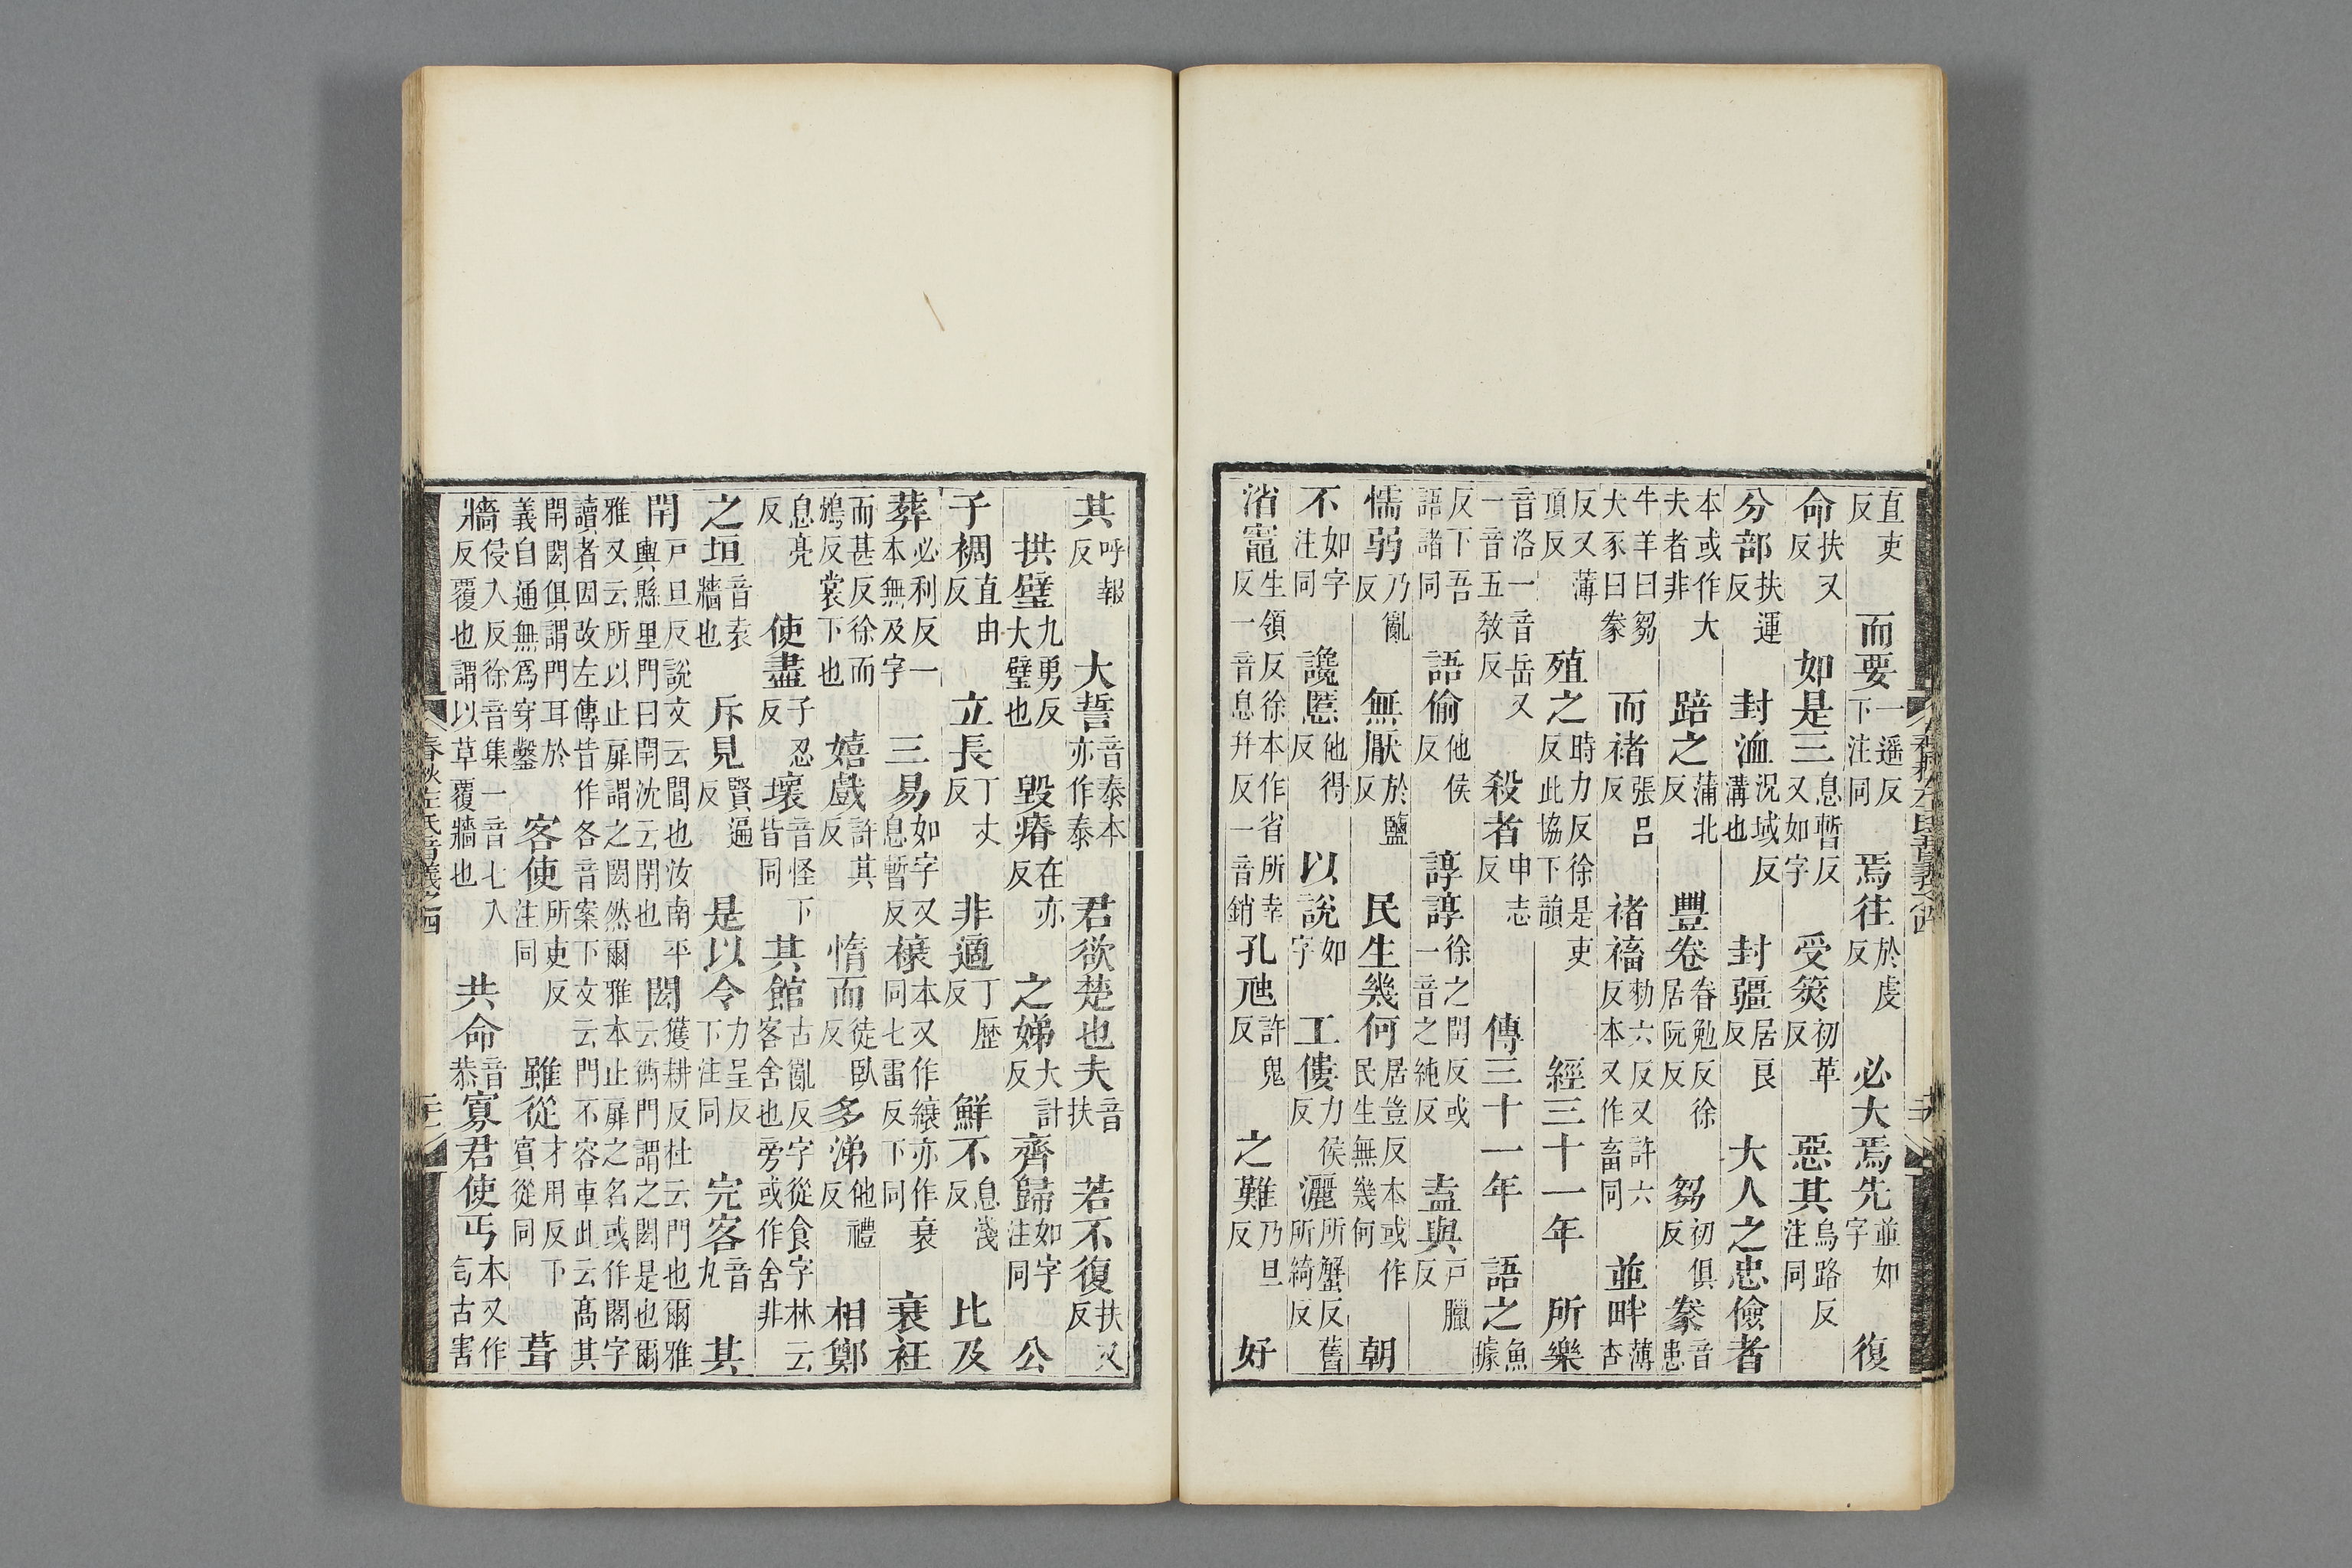 直吏反　而要一遥反下注同　焉往於虔反　必大焉先並如字　復
命扶又反　如是三息暫反又如字　受筴初革反　惡其烏路反注同
分部扶運反　封洫況域反溝也　封疆居良反　大人之忠儉者
本或作大夫者非　踣之蒲北反　豐卷眷勉反徐居阮反　芻初俱反豢音患
牛羊曰芻犬豕曰豢　而褚張呂反　褚褔勑六反又許六反本又作畜同　並畔薄杏
反又薄頂反　殖之時力反徐是吏反此協下韻　經三十一年　所樂
音洛一音岳又一音五敎反　殺者申志反　傳三十一年　語之魚據
反下吾語諸同　語偷他侯反　諄諄徐之閏反或一音之純反　盍與戶臘反
懦弱乃亂反　無厭於鹽反　民生幾何居豈反本或作民生無幾何　朝
不如字注同　讒慝他得反　以說如字　工僂力侯反　灑所蟹反舊所綺反
渻竈生領反徐本作省所幸反一音息幷反一音銷　孔虺許鬼反　之難乃旦反　好
其呼報反　大誓音泰本亦作泰　君欲楚也夫音扶　若不復扶又反
拱璧九勇反大璧也　毀瘠在亦反　之娣大計反　齊歸如字注同　公
子裯直由反　立長丁丈反　非適丁歴反　鮮不息淺反　比及
葬必利反一本無及字　三易如字又息暫反　榱本又作縗亦作衰同七雷反下同　衰衽
而甚反徐而鴆反裳下也　嬉戲許其反　惰而徒臥反　多涕他禮反　相鄭
息亮反　使盡子忍反　壞音怪下皆同　其館古亂反字從食字林云客舍也旁或作舍非
之垣音袁牆也　斥見賢遍反　是以令力呈反下注同　完客音丸　其
閈戶旦反說文云閭也汝南平輿縣里門曰閈沈云閈也　閎獲耕反杜云門也爾雅云衖門謂之閎是也爾
雅又云所以止扉謂之閎然爾雅本止扉之名或作閣字讀者因改左傳皆作各音案下文云門不容車此云高其
閈閎俱謂門耳於義白通無爲穿鑿　客使所吏反注同　雖從才用反下賓從同　葺
牆侵入反徐音集一音七入反覆也謂以草覆牆也　共命音恭　寡君使丐本又作匄古害
春秋左氏音義之四